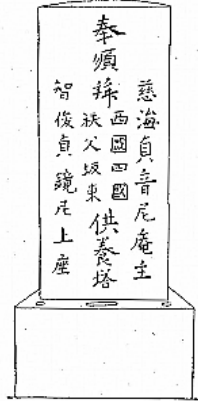 慈海貞音尼庵主
奉順
西國四國
秩父坂東
供養塔
智俊貞鏡尼上座